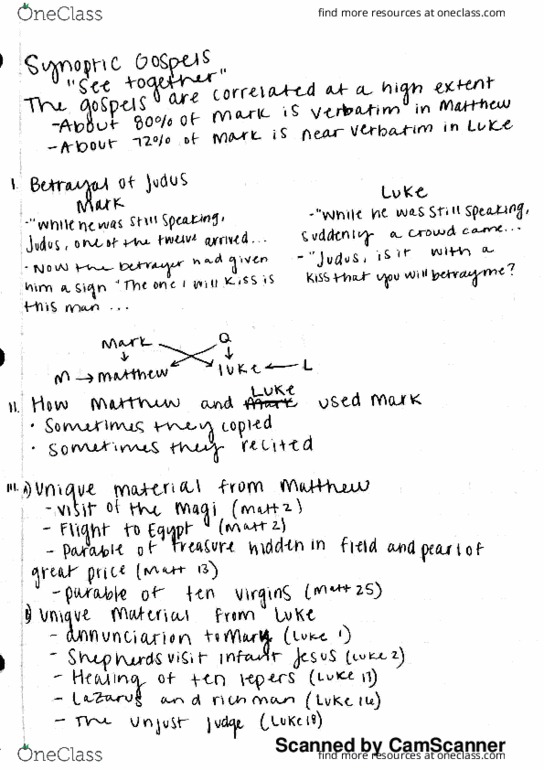 OneClass
find more resources at oneclass.com
Synoptic Gospels
"See together"
The gospels are correlated at a high extent
-About 80% of Mark is verbatim in Matthew
-About 72% of Mark is near verbatim in Luke
I. Betrayal of Judus
Mark
-"While he was still speaking,
Judus, one of the twelve arrived...
-Now the betrayer had given
him a sign "The one I will kiss is
this man ...
Luke
-"While he was still speaking,
suddenly a crowd came...
-"Judus, is it with a
kiss that you will betray me?
Mark Q
M → matthew luke ← L
II. How Matthew and Mark Luke used Mark
• Sometimes they copied
• Sometimes they recited
III. A) Unique material from Matthew
- visit of the Magi (Matt 2)
- Flight to Egypt (Matt 2)
- Parable of treasure hidden in field and pearl of
great price (Matt 13)
- parable of ten virgins (Matt 25)
B) Unique Material from Luke
- annunciation to Mary (Luke 1)
- Shepherds visit infant Jesus (Luke 2)
- Healing of ten lepers (Luke 17)
- Lazarus and rich man (Luke 16)
- The unjust judge (Luke 18)
Scanned by CamScanner
OneClass
find more resources at oneclass.com